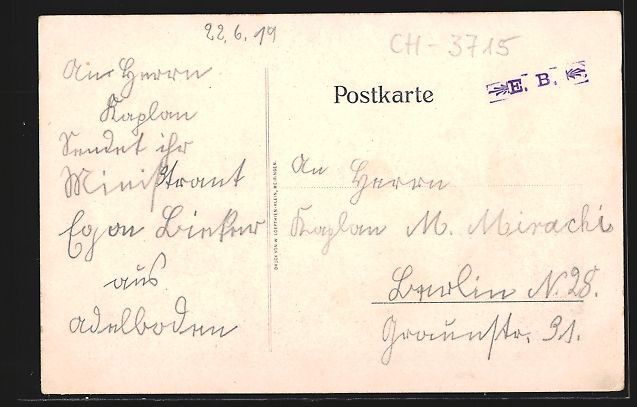 22.6.19
CH-3715
An Herrn
Kaplan
Sendet ihr
Ministrant
Egon Bieker
aus
Adelboden
DRUCK VON W. LOEPTHIEN-KLEIN, MEIRINGEN.
Postkarte
E. B.
An Herrn
Kaplan M. Mirachi
Berlin N. 28.
Graunstr. 31.